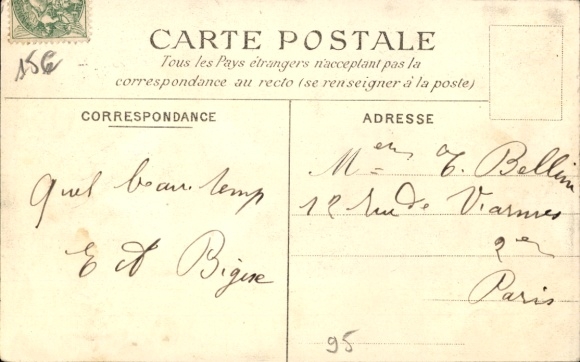 156
CARTE POSTALE
Tous les Pays étrangers n'acceptant pas la
correspondance au recto (se renseigner à la poste)
CORRESPONDANCE
ADRESSE
Quel beau temp
E A Bigex
M T. Bellini
12 rue de Viarmes
2e
Paris
95